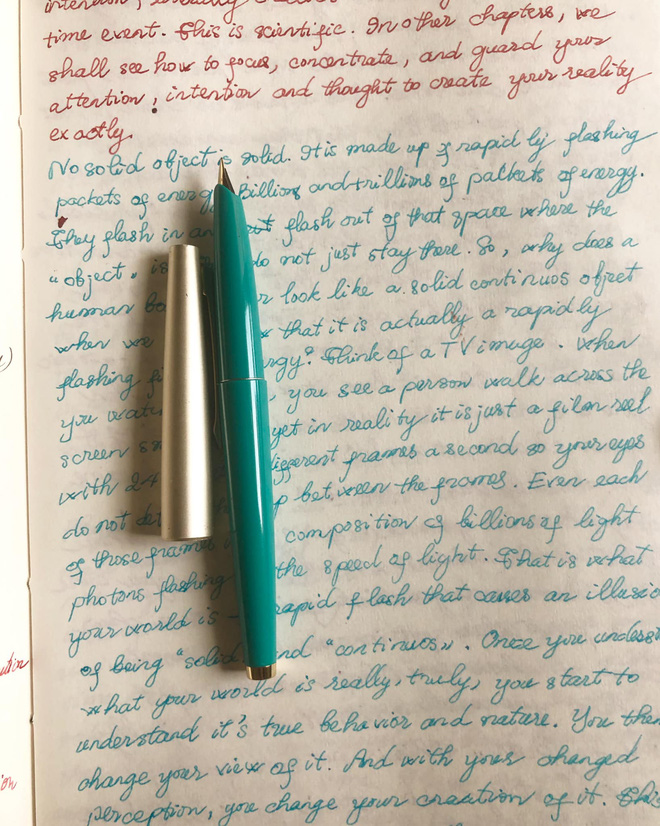 time event. This is scientific. In other chapters, we
shall see how to focus, concentrate, and guard your
attention, intention and thought to create your reality
exactly.
No solid object is solid. It is made up of rapidly flashing
packets of energy. Billions and trillions of packets of energy.
They flash in an out flash out of that space where the
"object" is do not just stay there. So, why does a
human look like a solid continuos object
when we that it is actually a rapidly
flashing Think of a TV image. When
you , you see a person walk across the
screen yet in reality it is just a film reel
with 24 different frames a second so your eyes
do not between the frames. Even each
of those frames composition of billions of light
photons flashing the speed of light. That is what
your world is - rapid flash that causes an
of being "solid and "continuos". Once you
what your world is really, truly, you start to
understand it's true behavior and nature. You then
change your view of it. And with your changed
perception, you change your of it.